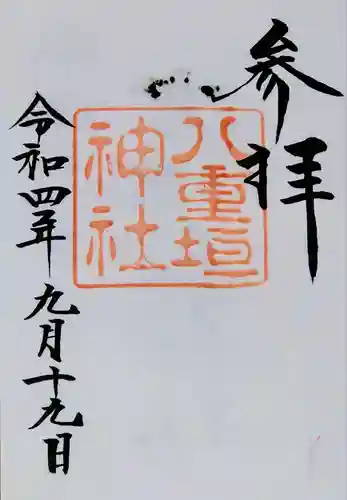 参拝
八重垣
神社
令和四年九月十九日